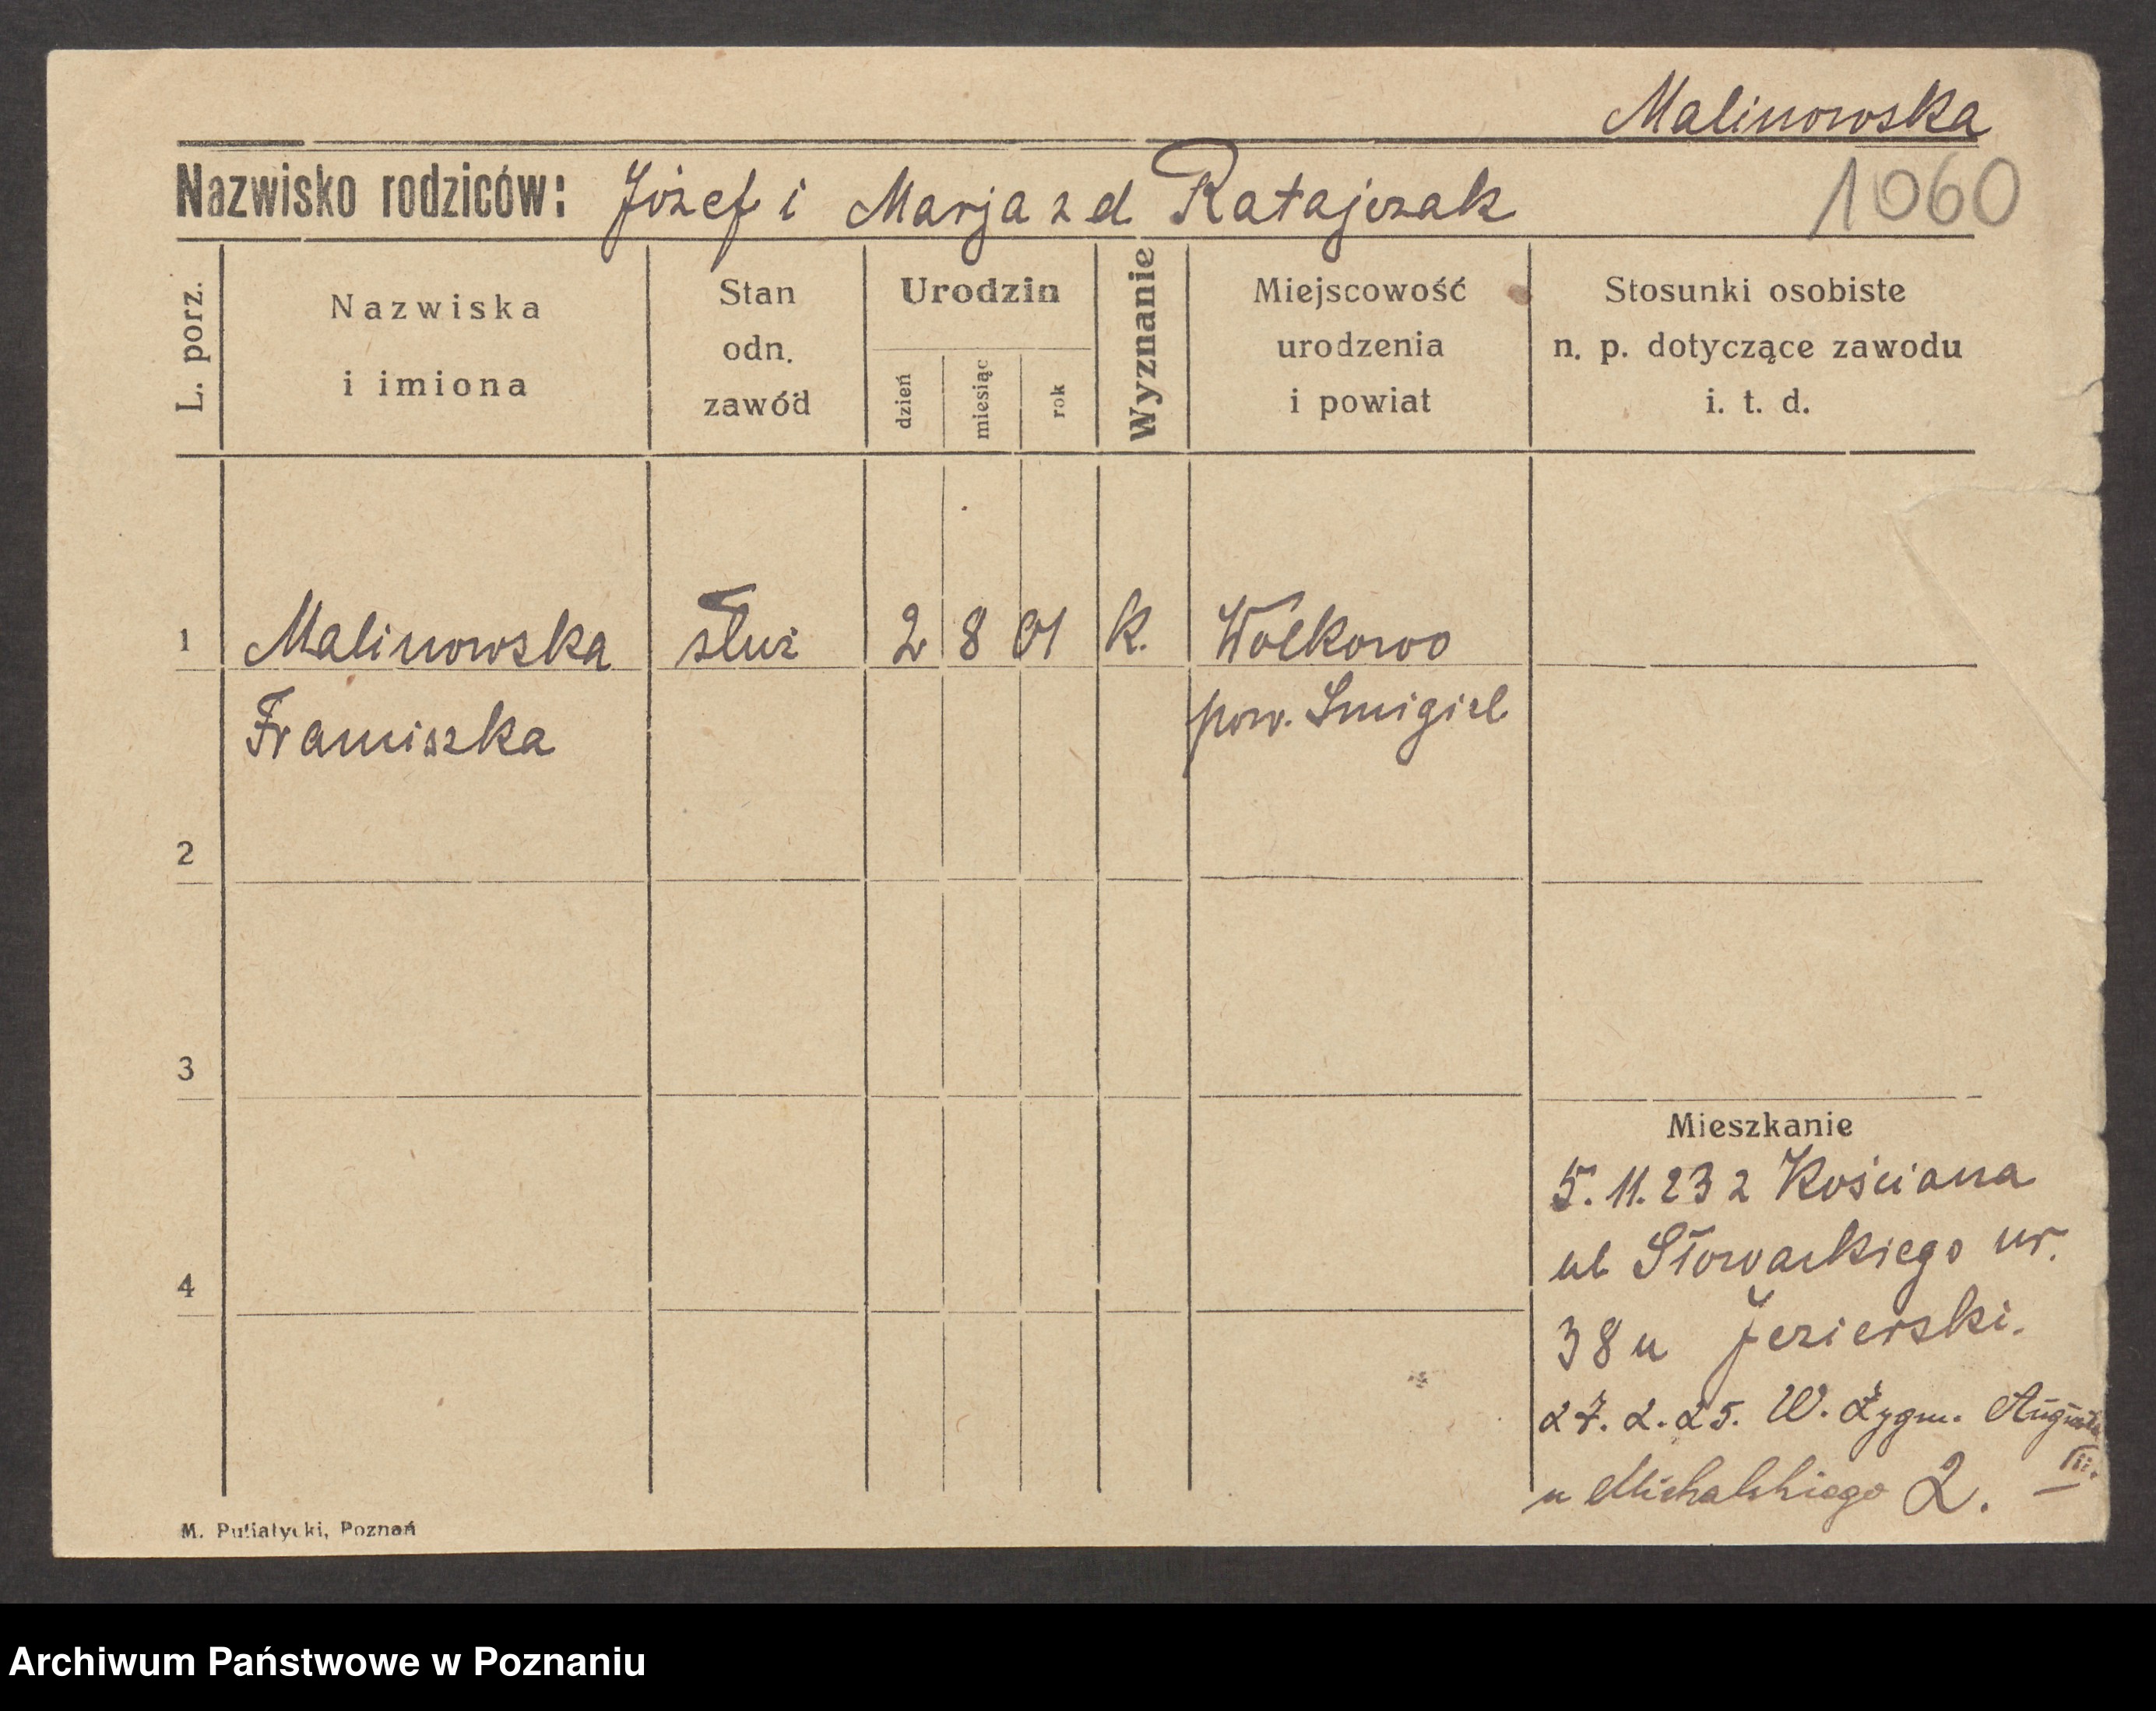 Malinowska
1060
Nazwisko rodziców: Józef i Marja z d Ratajczak
L. porz.
Nazwiska
i imiona
Stan
odn.
zawód
Urodzin
dzień
miesiąc
rok
Wyznanie
Miejscowość
urodzenia
i powiat
Stosunki osobiste
n. p. dotyczące zawodu
i. t. d.
1 Malinowska służ 2 8 01 K. Wolkowo
Franciszka pow. Smigiel
2
3
Mieszkanie
5. 11. 23 z Kościana
ul Słowackiego nr.
4
38 u Jezierski.
27. 2. 25. W. Zygm. Augusta
u Michalskiego 2. III.
M. Putiatycki, Poznań
Archiwum Państwowe w Poznaniu